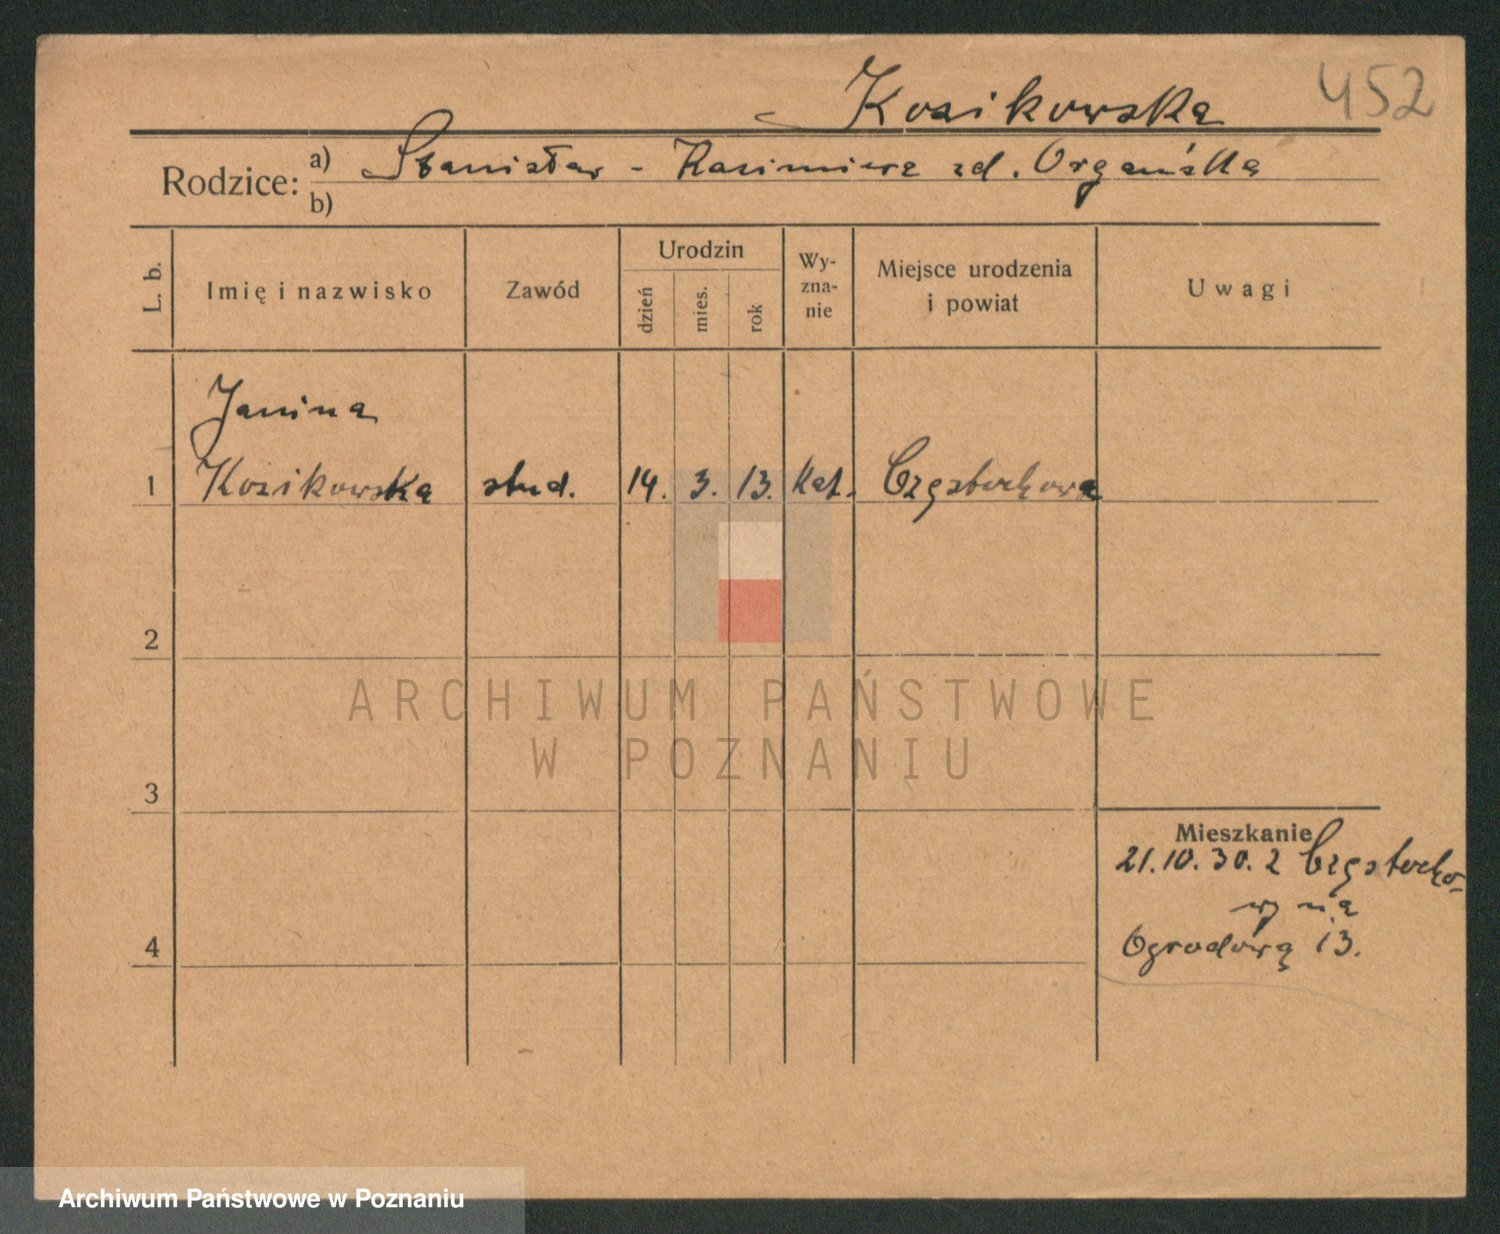 452
Kozikowska
Rodzice: a) Stanisław - Kazimiera zd. Organistka
b)
L. b. Imię i nazwisko Zawód Urodzin dzień mies. rok Wy-zna-nie Miejsce urodzenia i powiat Uwagi
Janina
1 Kozikowska stud. 14. 3. 13. kat. Częstochowa
2
ARCHIWUM PAŃSTWOWE
W POZNANIU
3
Mieszkanie
21.10.30. z Częstocho-
wy na
4 Ogrodową 13.
Archiwum Państwowe w Poznaniu